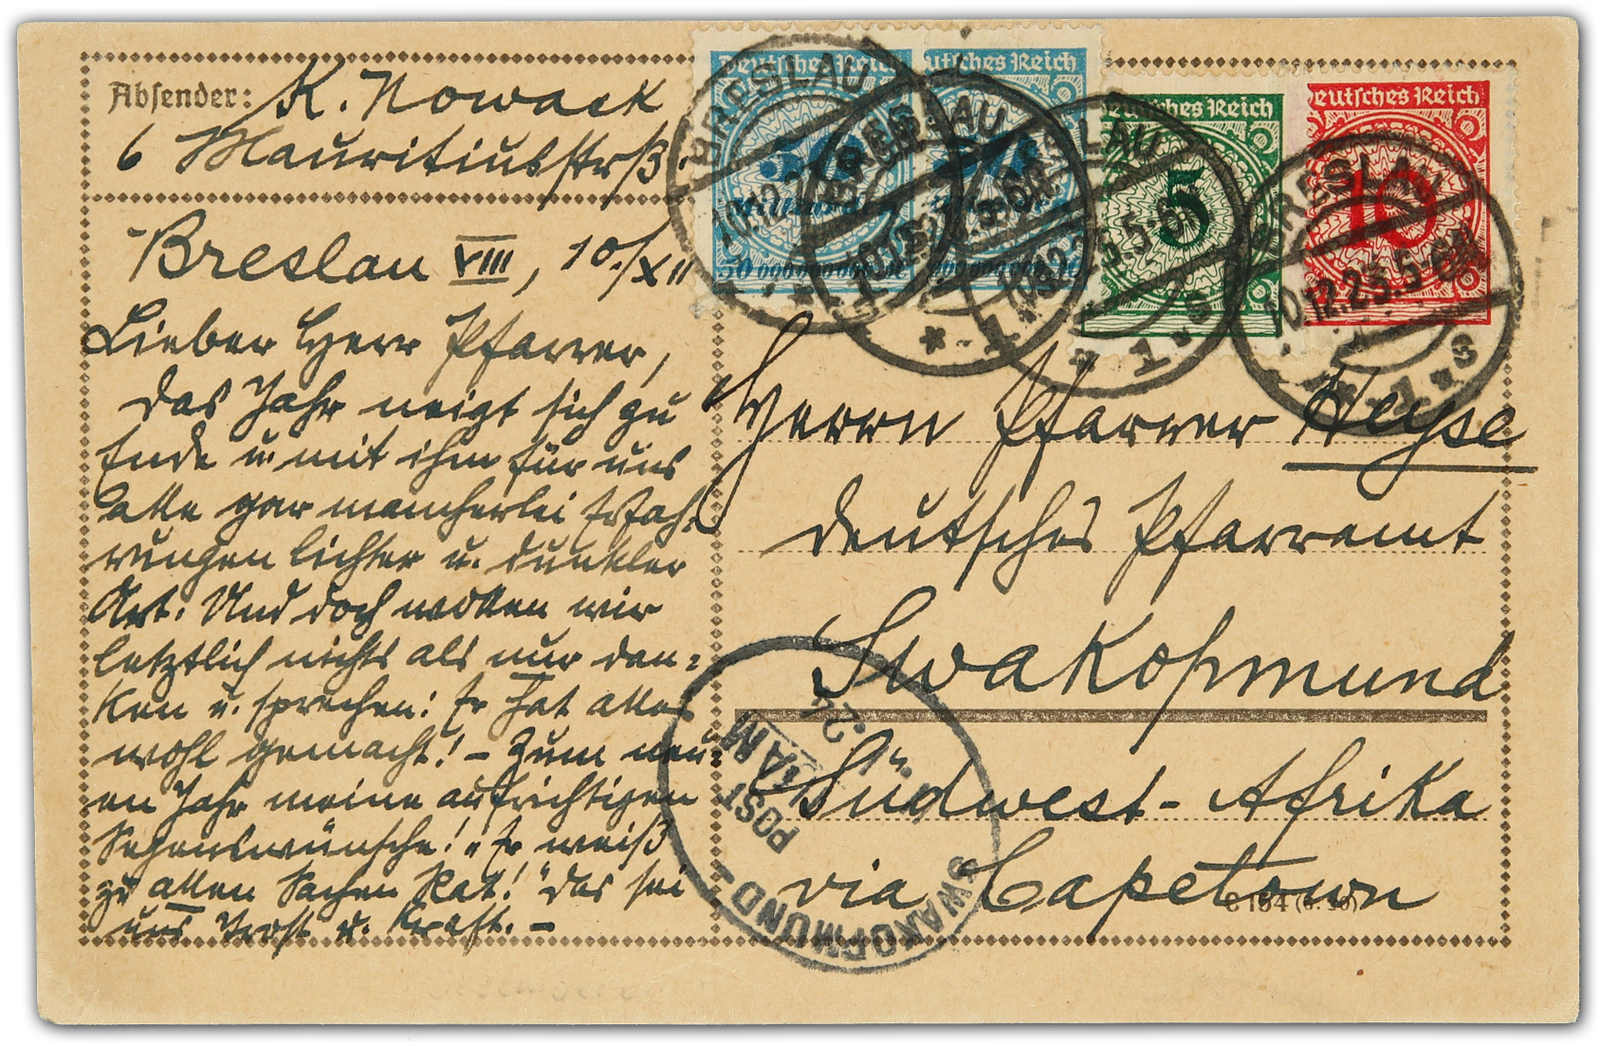 Absender: K. Nowack
6 Mauritiusstrß.
Breslau VIII, 10./XII
Lieber Herr Pfarrer,
das Jahr neigt sich zu
Ende u. mit ihm für uns
alle gar mancherlei Erfah-
rungen lichter u. dunkler
Art. Und doch wollen wir
letztlich nichts als nur dan-
ken u. sprechen: Er hat alles
wohl gemacht! – Zum neu-
en Jahr meine aufrichtigen
Segenswünsche! „Er weiß
zu allen Sachen Rat!" Das sei
uns Trost u. Kraft. –
Deutsches Reich
50 000 000 000
eutsches Reich
ches Reich
5
eutsches Reich
10
BRESLAU
10.12.23.5-6N
* 1 * s
Herrn Pfarrer Heyse
Deutsches Pfarramt
Swakopmund
Südwest-Afrika
via Capetown
C 154
SWAKOPMUND
POST
24